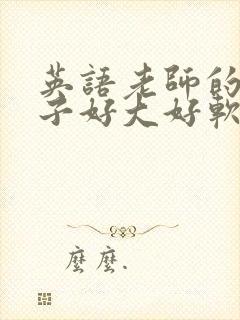 英語老師的
子好大好軟
麼麼.